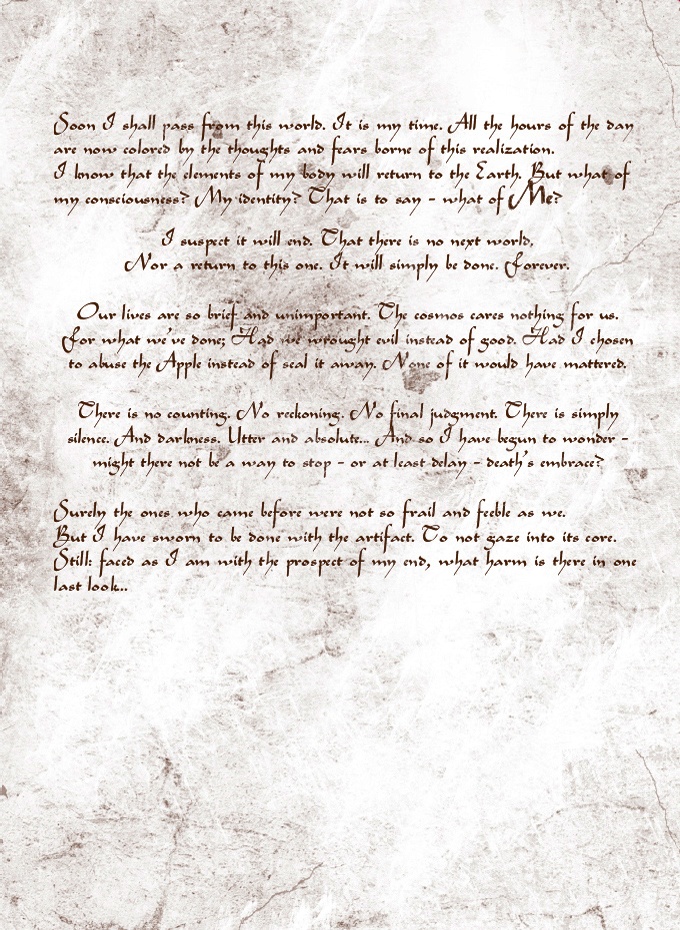 Soon I shall pass from this world. It is my time. All the hours of the day
are now colored by the thoughts and fears borne of this realization.
I know that the elements of my body will return to the Earth. But what of
my consciousness? My identity? That is to say - what of Me?
I suspect it will end. That there is no next world,
Nor a return to this one. It will simply be done. Forever.
Our lives are so brief and unimportant. The cosmos cares nothing for us.
For what we've done; Had we wrought evil instead of good. Had I chosen
to abuse the Apple instead of seal it away. None of it would have mattered.
There is no counting. No reckoning. No final judgment. There is simply
silence. And darkness. Utter and absolute... And so I have begun to wonder -
might there not be a way to stop - or at least delay - death's embrace?
Surely the ones who came before were not so frail and feeble as we.
But I have sworn to be done with the artifact. To not gaze into its core.
Still: faced as I am with the prospect of my end, what harm is there in one
last look...